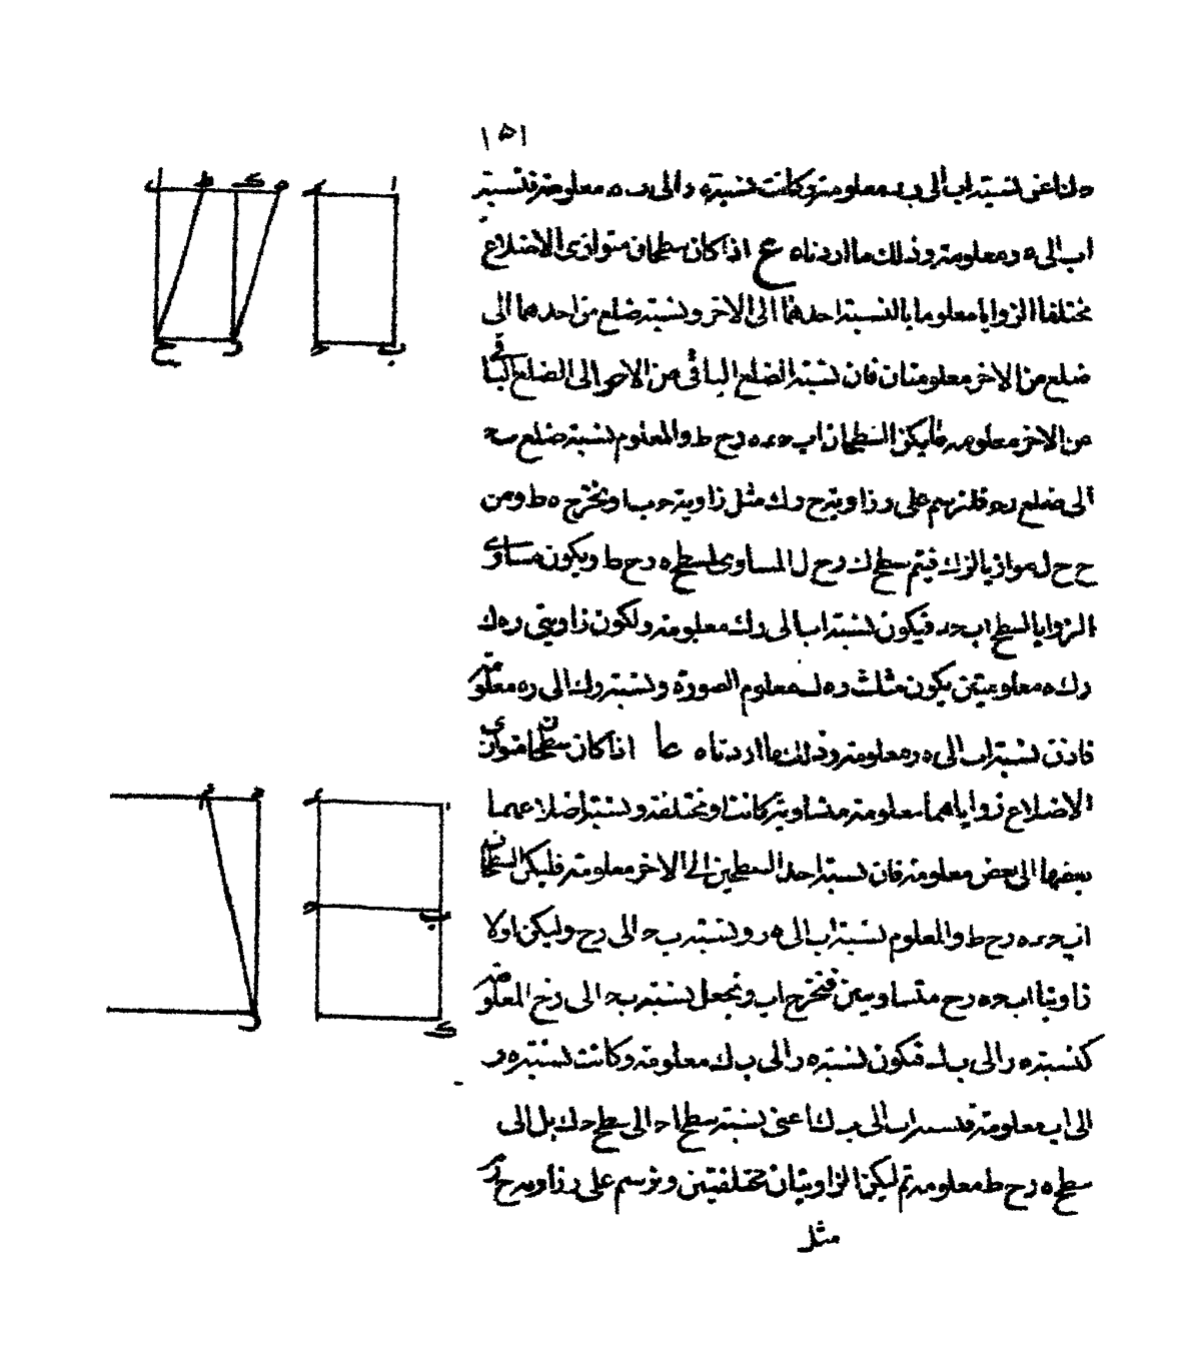 ١٥١
ه ك اعنى نسبة اب الى ب ه معلومة وكانت نسبة ه ر الى ب ه معلومة فنسبة
اب الى ه ر معلومة وذلك ما اردناه ع اذا كان سطحان متوازى الاضلاع
مختلفا الزوايا معلوما بالنسبة احدهما الى الاخر ونسبة ضلع من احدهما الى
ضلع من الاخر معلومتان فان نسبة الضلع الباقى من الاخر الى الضلع الباقى
من الاخر معلومه فليكن السطحان اب حد ه رح ط والمعلوم نسبة ضلع ب ح
الى ضلع ره فلنرسم على ر زاوية ح ر ك مثل زاوية ح ب ا ونخرج ه ط ومن
ح ح ل موازيا لرك فيتم سطح ك ر ح ل المساوى لسطح ه ر ح ط ويكون مساوى
الزوايا لسطح اب حد فيكون نسبة اب الى رك معلومة ولكون زاويتى ره ك
رك ه معلومتين يكون مثلث ره ك معلوم الصورة ونسبة رك الى ره معلومة
فاذن نسبة اب الى ه ر معلومة وذلك ما اردناه عا اذا كان سطحان متوازى
الاضلاع زواياهما معلومة متساوية كانت او مختلفة ونسبة اضلاعهما
بعضها الى بعض معلومة فان نسبة احد السطحين الى الاخر معلومة فليكن السطحان
اب حد ه رح ط والمعلوم نسبة اب الى ه ر ونسبة ب ح الى رح وليكن اولا
زاويتا اب ح ه رح متساويتين فنخرج اب ونجعل نسبة ب ح الى رح المعلومة
كنسبة ه ر الى ب ك فيكون نسبة ه ر الى ب ك معلومة وكانت نسبة ه ر
الى اب معلومة فنسبة اب الى ب ك اعنى نسبة سطح ا ح الى سطح ح ك بل الى
سطح ه رح ط معلومة ثم ليكن الزاويتان مختلفتين ونرسم على ر زاوية ح ر م
مثل